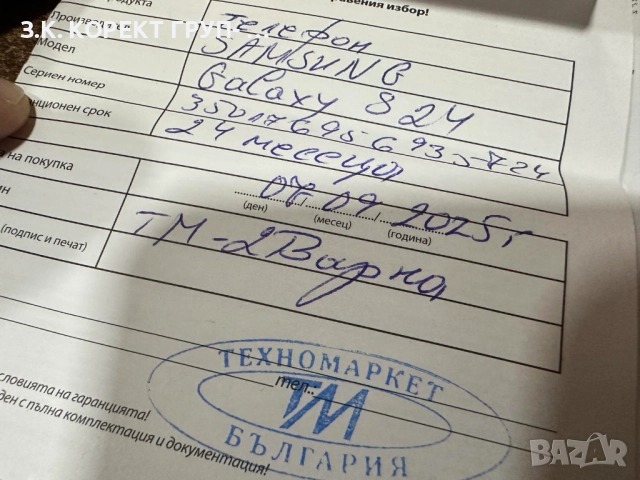 З.К. КОРЕКТ ГРУП
родукта
равения избор!
Производител
Телефон
Модел
SAMSUNG
Сериен номер
Galaxy S 24
нционен срок
24 месеца
на покупка
07 09 2025 г
(ден) (месец) (година)
ин
ТМ-2 Варна
(подпис и печат)
ТЕХНОМАРКЕТ
тел..
ТМ
БЪЛГАРИЯ
словията на гаранцията!
ден с пълна комплектация и документация!
BAZAR